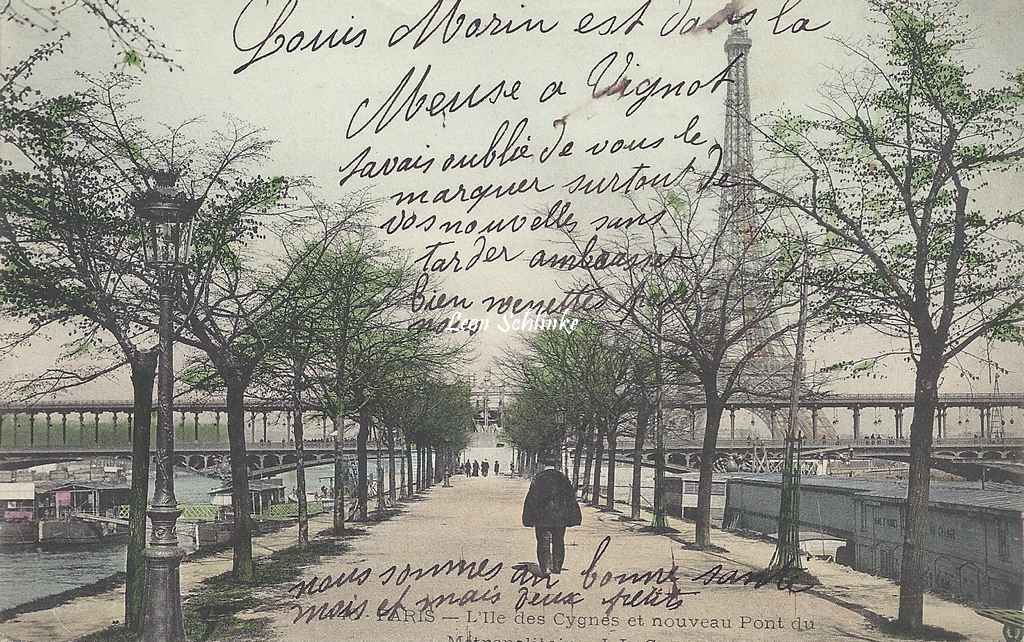 Louis Morin est dans la
Meuse a Vignot
javais oublié de vous le
marquer surtout de
vos nouvelles sans
tarder
bien menettes
Leon Schlinke
nous sommes en bonne sante
mois et mais deux petits
PARIS — L'Ile des Cygnes et nouveau Pont du
Métropolitain